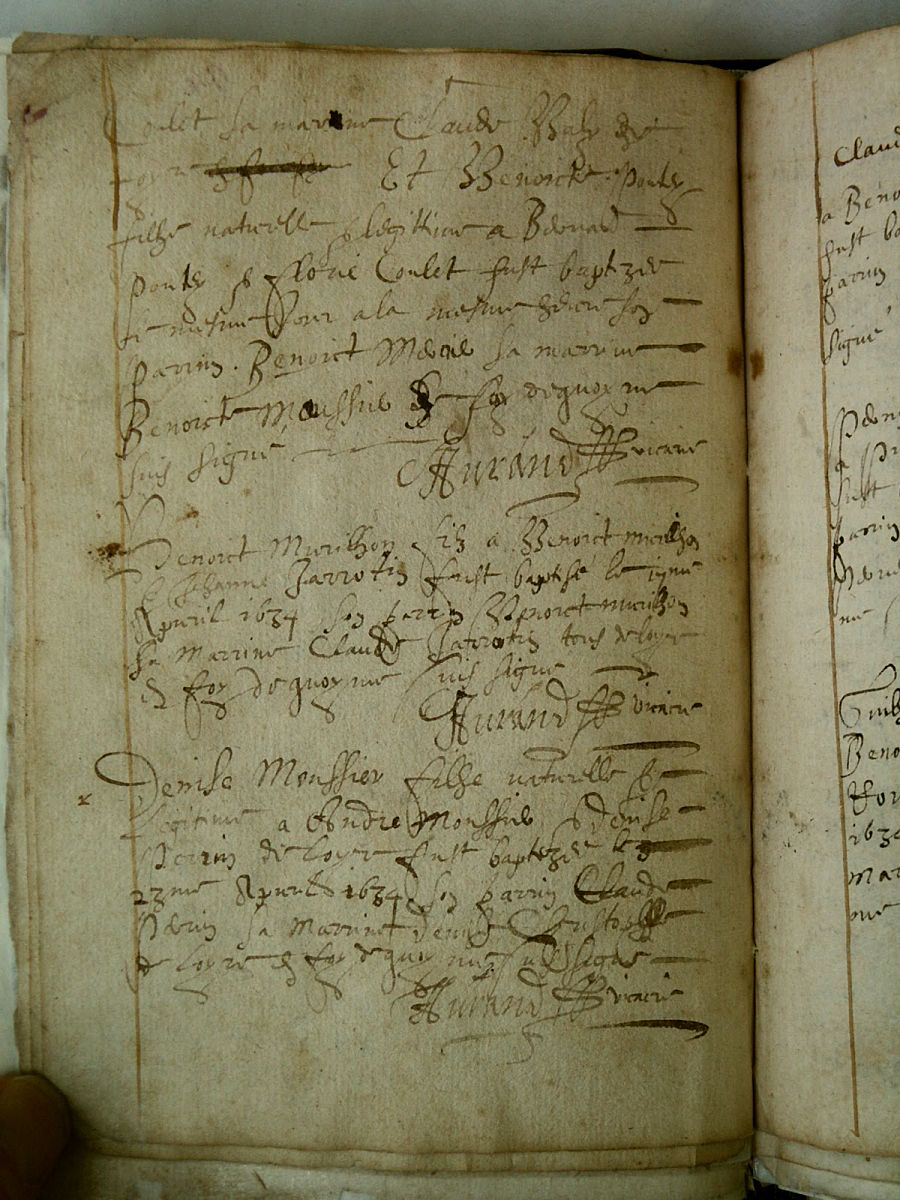 Coulet sa marrine Claude
Et Benoicte Ponte
filhe naturelle & legittime a Bernard
Ponte & Florie Coulet fust baptizee
le mesme Jour a la mesme heure son
parrin Benoict sa marrine
Benoicte Moussier En foy de quoy me
suis signé
Aurand vicaire
Benoict Murilhon filz a Benoict murilhon
& Jehanne Jarrotin fust baptisé le
Apuril 1634 son parrin Benoict murilhon
sa marrine Claude Jarrotin tous de loyre
En foy de quoy me suis signe
Aurand vicaire
Denise Moussier filhe naturelle &
legitime a Andre Moussier & denise
Perrin de loyre fust baptizee le
23me Apuril 1634 son parrin Claude
Perrin sa marrine denise Christophle
de loyre En foy de quoy me suis signe
Aurand vicaire
Claud
a Beno
fust ba
parrin
signe
a
fust
parrin
me
Guilh
Beno
1634
mar
me